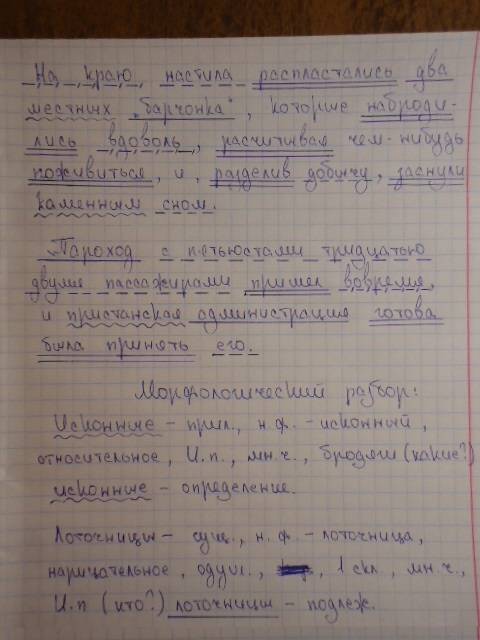 На краю настила распластались два
местных „барчонка“, которые наброди-
лись вдоволь, расчитывая чем-нибудь
поживиться, и, разделив добычу, заснули
каменным сном.
Пароход с пятьюстами тридцатью
двумя пассажирами пришел вовремя,
и пристанская администрация готова
была принять его.
Морфологический разбор:
Исконные – прил., н.ф. – исконный,
относительное, И.п., мн.ч., бродяги (какие?)
исконные – определение.
Лоточницы – сущ., н.ф. – лоточница,
нарицательное, одуш., 1 скл., мн.ч.,
И.п (кто?) лоточницы – подлеж.